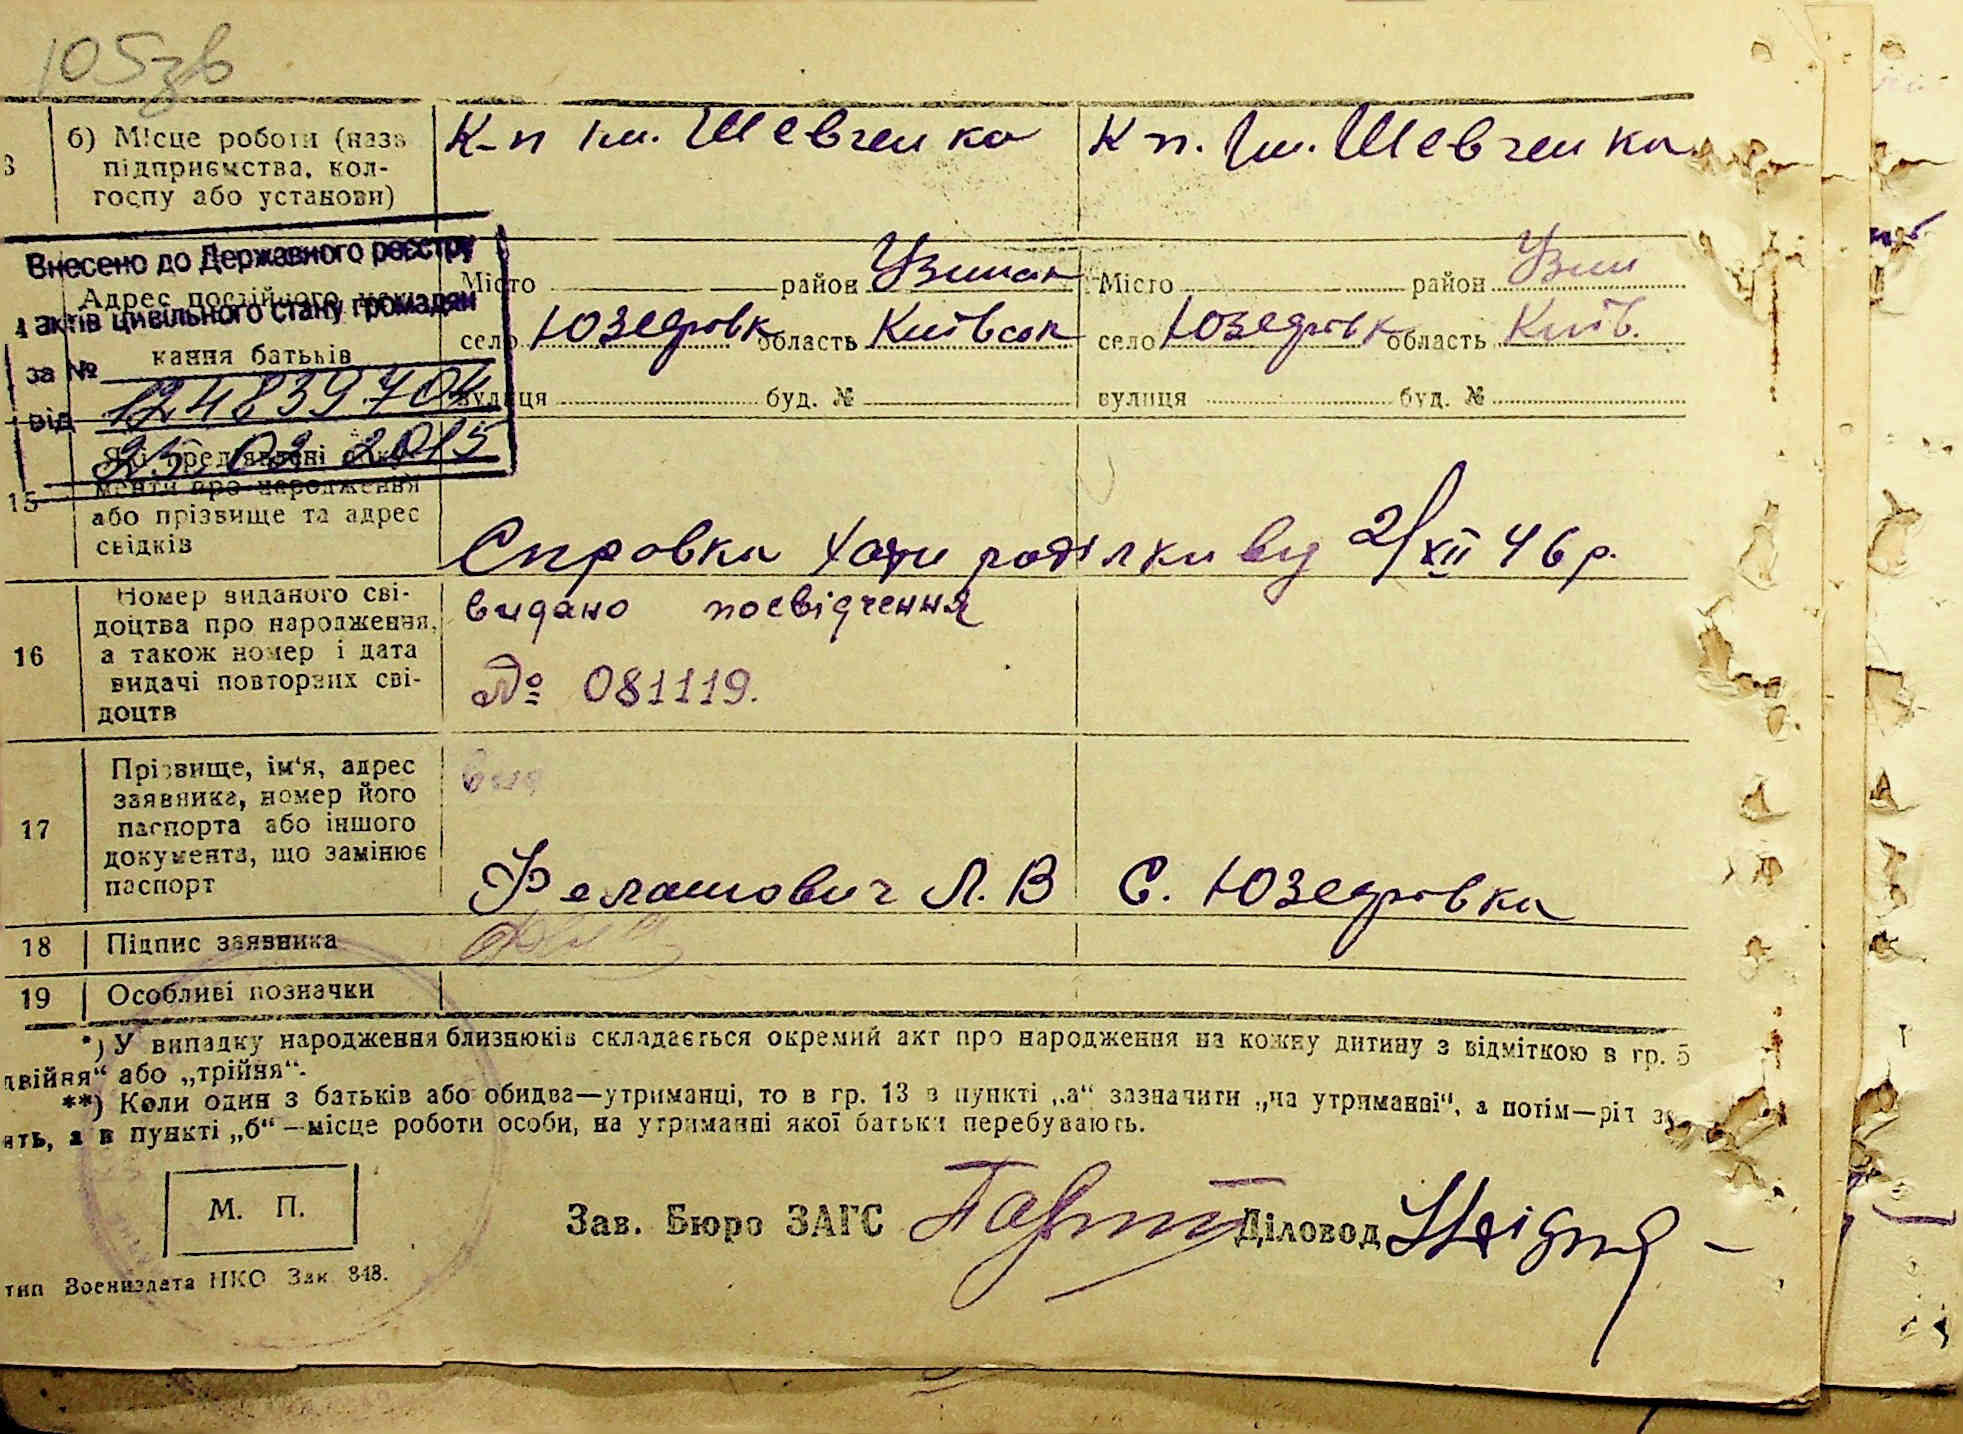 105зв
б) Місце роботи (назв
підприємства, кол-
госпу або установи)
К-п Ім. Шевченка
Кп. Ім. Шевченка
Внесено до Державного реєстру
актів цивільного стану громадян
за № 124839704
від 25.02.2015
Адрес постійного меш-
кання батьків
Місто район Узинськ
село Юзефовк область Київськ
вулиця буд. №
Місто район Узин
село Юзефовк область Київ.
вулиця буд. №
15
Які пред'явлені доку-
менти про народження
або прізвище та адрес
свідків
Справка Хати роділки від 2/XII 46 р.
16
Номер виданого сві-
доцтва про народження,
а також номер і дата
видачі повторних сві-
доцтв
видано посвідчення
№ 081119.
17
Прізвище, ім'я, адрес
заявника, номер його
паспорта або іншого
документа, що замінює
паспорт
вид
Л. В С. Юзефовка
18 Підпис заявника
19 Особливі позначки
*) У випадку народження близнюків складається окремий акт про народження на кожну дитину з відміткою в гр. 5
двійня“ або „трійня“.
**) Коли один з батьків або обидва—утриманці, то в гр. 13 в пункті „а“ зазначити „на утриманні“, а потім—рід за
ять, а в пункті „б“—місце роботи особи, на утриманні якої батьки перебувають.
М. П.
Зав. Бюро ЗАГС
Діловод
тип Воениздата НКО Зак. 848.